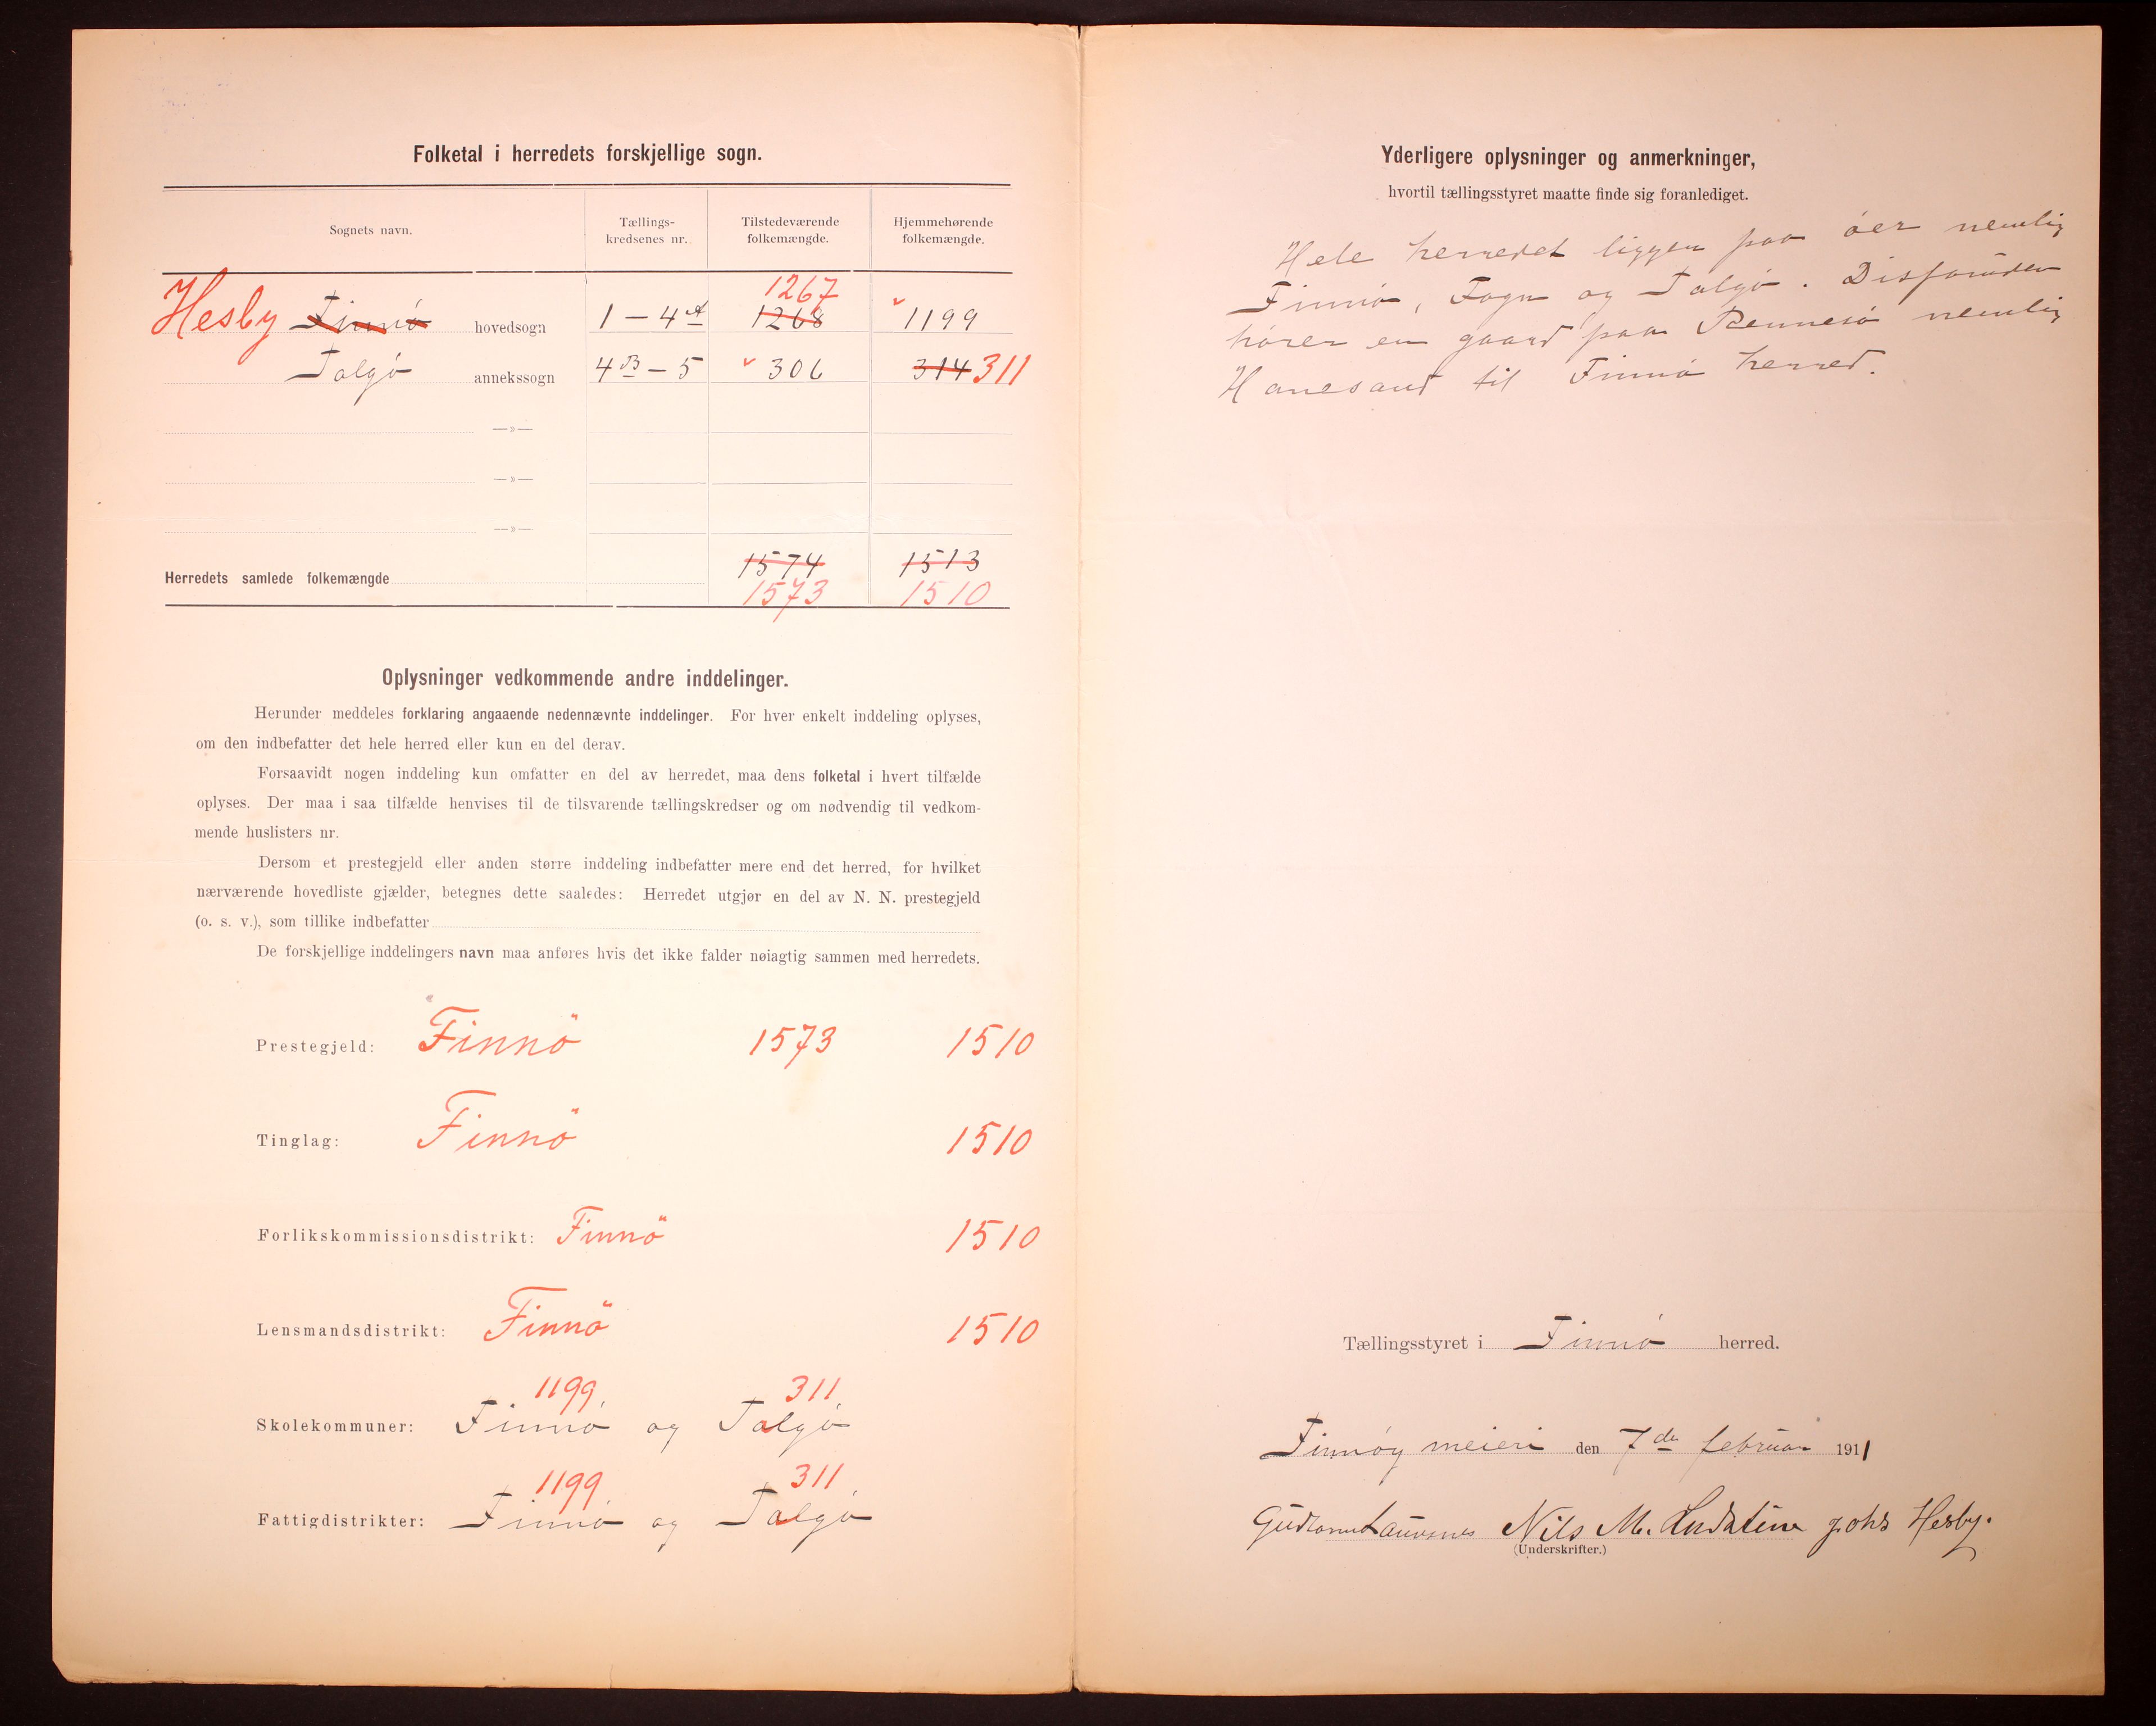 Folketal i herredets forskjellige sogn.
Sognets navn. Tællings-kredsenes nr. Tilstedeværende folkemængde. Hjemmehørende folkemængde.
1267
Hesby Finnø hovedsogn 1 - 4A 1268 1199
Talgø annekssogn 4B - 5 306 314 311
—»—
—»—
—»—
1574 1513
Herredets samlede folkemængde
1573 1510
Oplysninger vedkommende andre inddelinger.
Herunder meddeles forklaring angaaende nedennævnte inddelinger. For hver enkelt inddeling oplyses,
om den indbefatter det hele herred eller kun en del derav.
Forsaavidt nogen inddeling kun omfatter en del av herredet, maa dens folketal i hvert tilfælde
oplyses. Der maa i saa tilfælde henvises til de tilsvarende tællingskredser og om nødvendig til vedkom-
mende huslisters nr.
Dersom et prestegjeld eller anden større inddeling indbefatter mere end det herred, for hvilket
nærværende hovedliste gjælder, betegnes dette saaledes: Herredet utgjør en del av N. N. prestegjeld
(o. s. v.), som tillike indbefatter
De forskjellige inddelingers navn maa anføres hvis det ikke falder nøiagtig sammen med herredets.
Prestegjeld: Finnö 1573 1510
Tinglag: Finnö 1510
Forlikskommissionsdistrikt: Finnö 1510
Lensmandsdistrikt: Finnö 1510
1199 311
Skolekommuner: Finnø og Talgø
1199 311
Fattigdistrikter: Finnø og Talgø
Yderligere oplysninger og anmerkninger,
hvortil tællingsstyret maatte finde sig foranlediget.
Hele herredet ligger paa öer nemlig
Finnø, Fogn og Talgø. Desforuden
hører en gaard paa Rennesø nemlig
Hanesand til Finnø herred.
Tællingsstyret i Finnø herred.
Finnøy meieri den 7de februar 1911
Nils M. Johs Hesby.
(Underskrifter.)